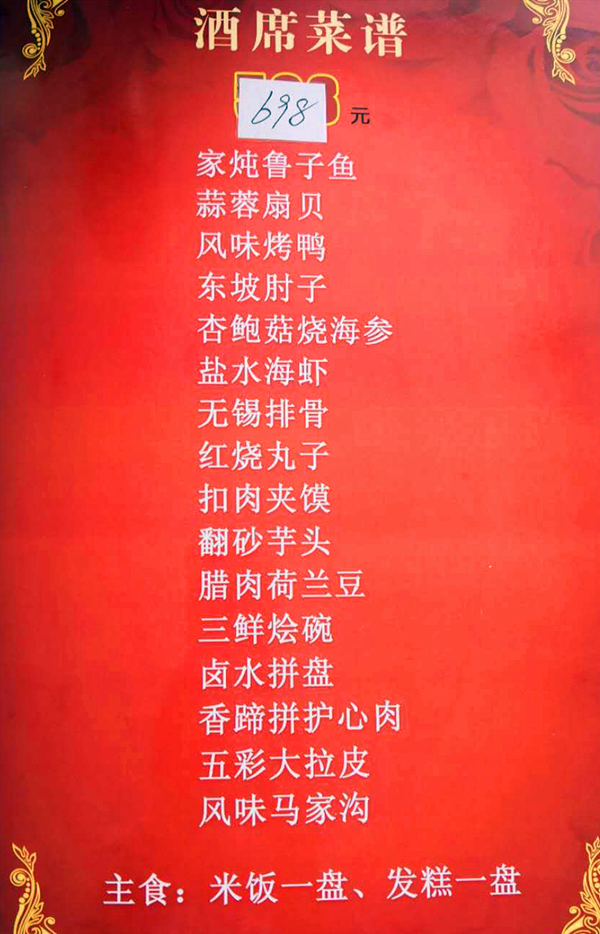 酒席菜谱
698 元
家炖鲁子鱼
蒜蓉扇贝
风味烤鸭
东坡肘子
杏鲍菇烧海参
盐水海虾
无锡排骨
红烧丸子
扣肉夹馍
翻砂芋头
腊肉荷兰豆
三鲜烩碗
卤水拼盘
香蹄拼护心肉
五彩大拉皮
风味马家沟
主食：米饭一盘、发糕一盘